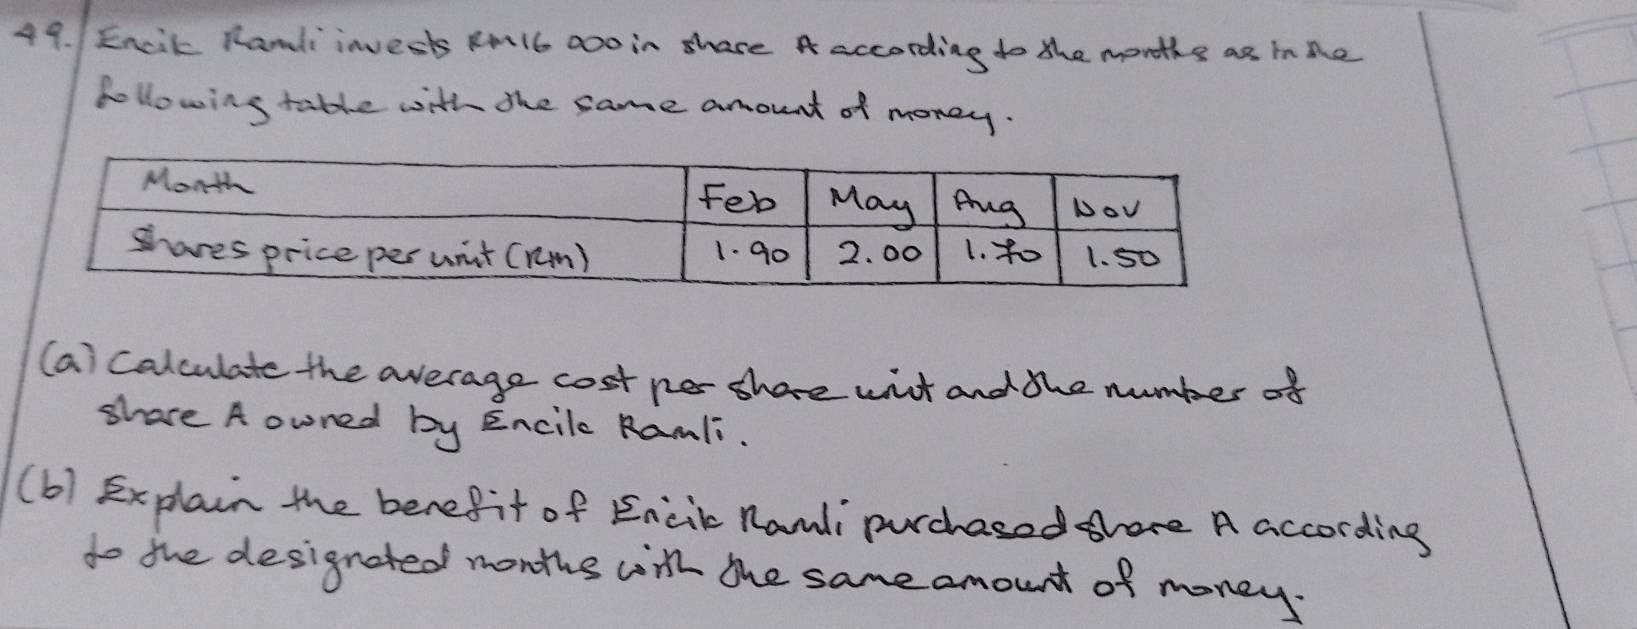 49. Encik Ramli invests RM16 000 in share A according to the months as in the
following table with the same amount of money.
Month Feb May Aug Nov
Shares price per unit (RM) 1.90 2.00 1.70 1.50
(a) Calculate the average cost per share unit and the number of
share A owned by Encik Ramli.
(b) Explain the benefit of Encik Ramli purchased share A according
to the designated months with the same amount of money.